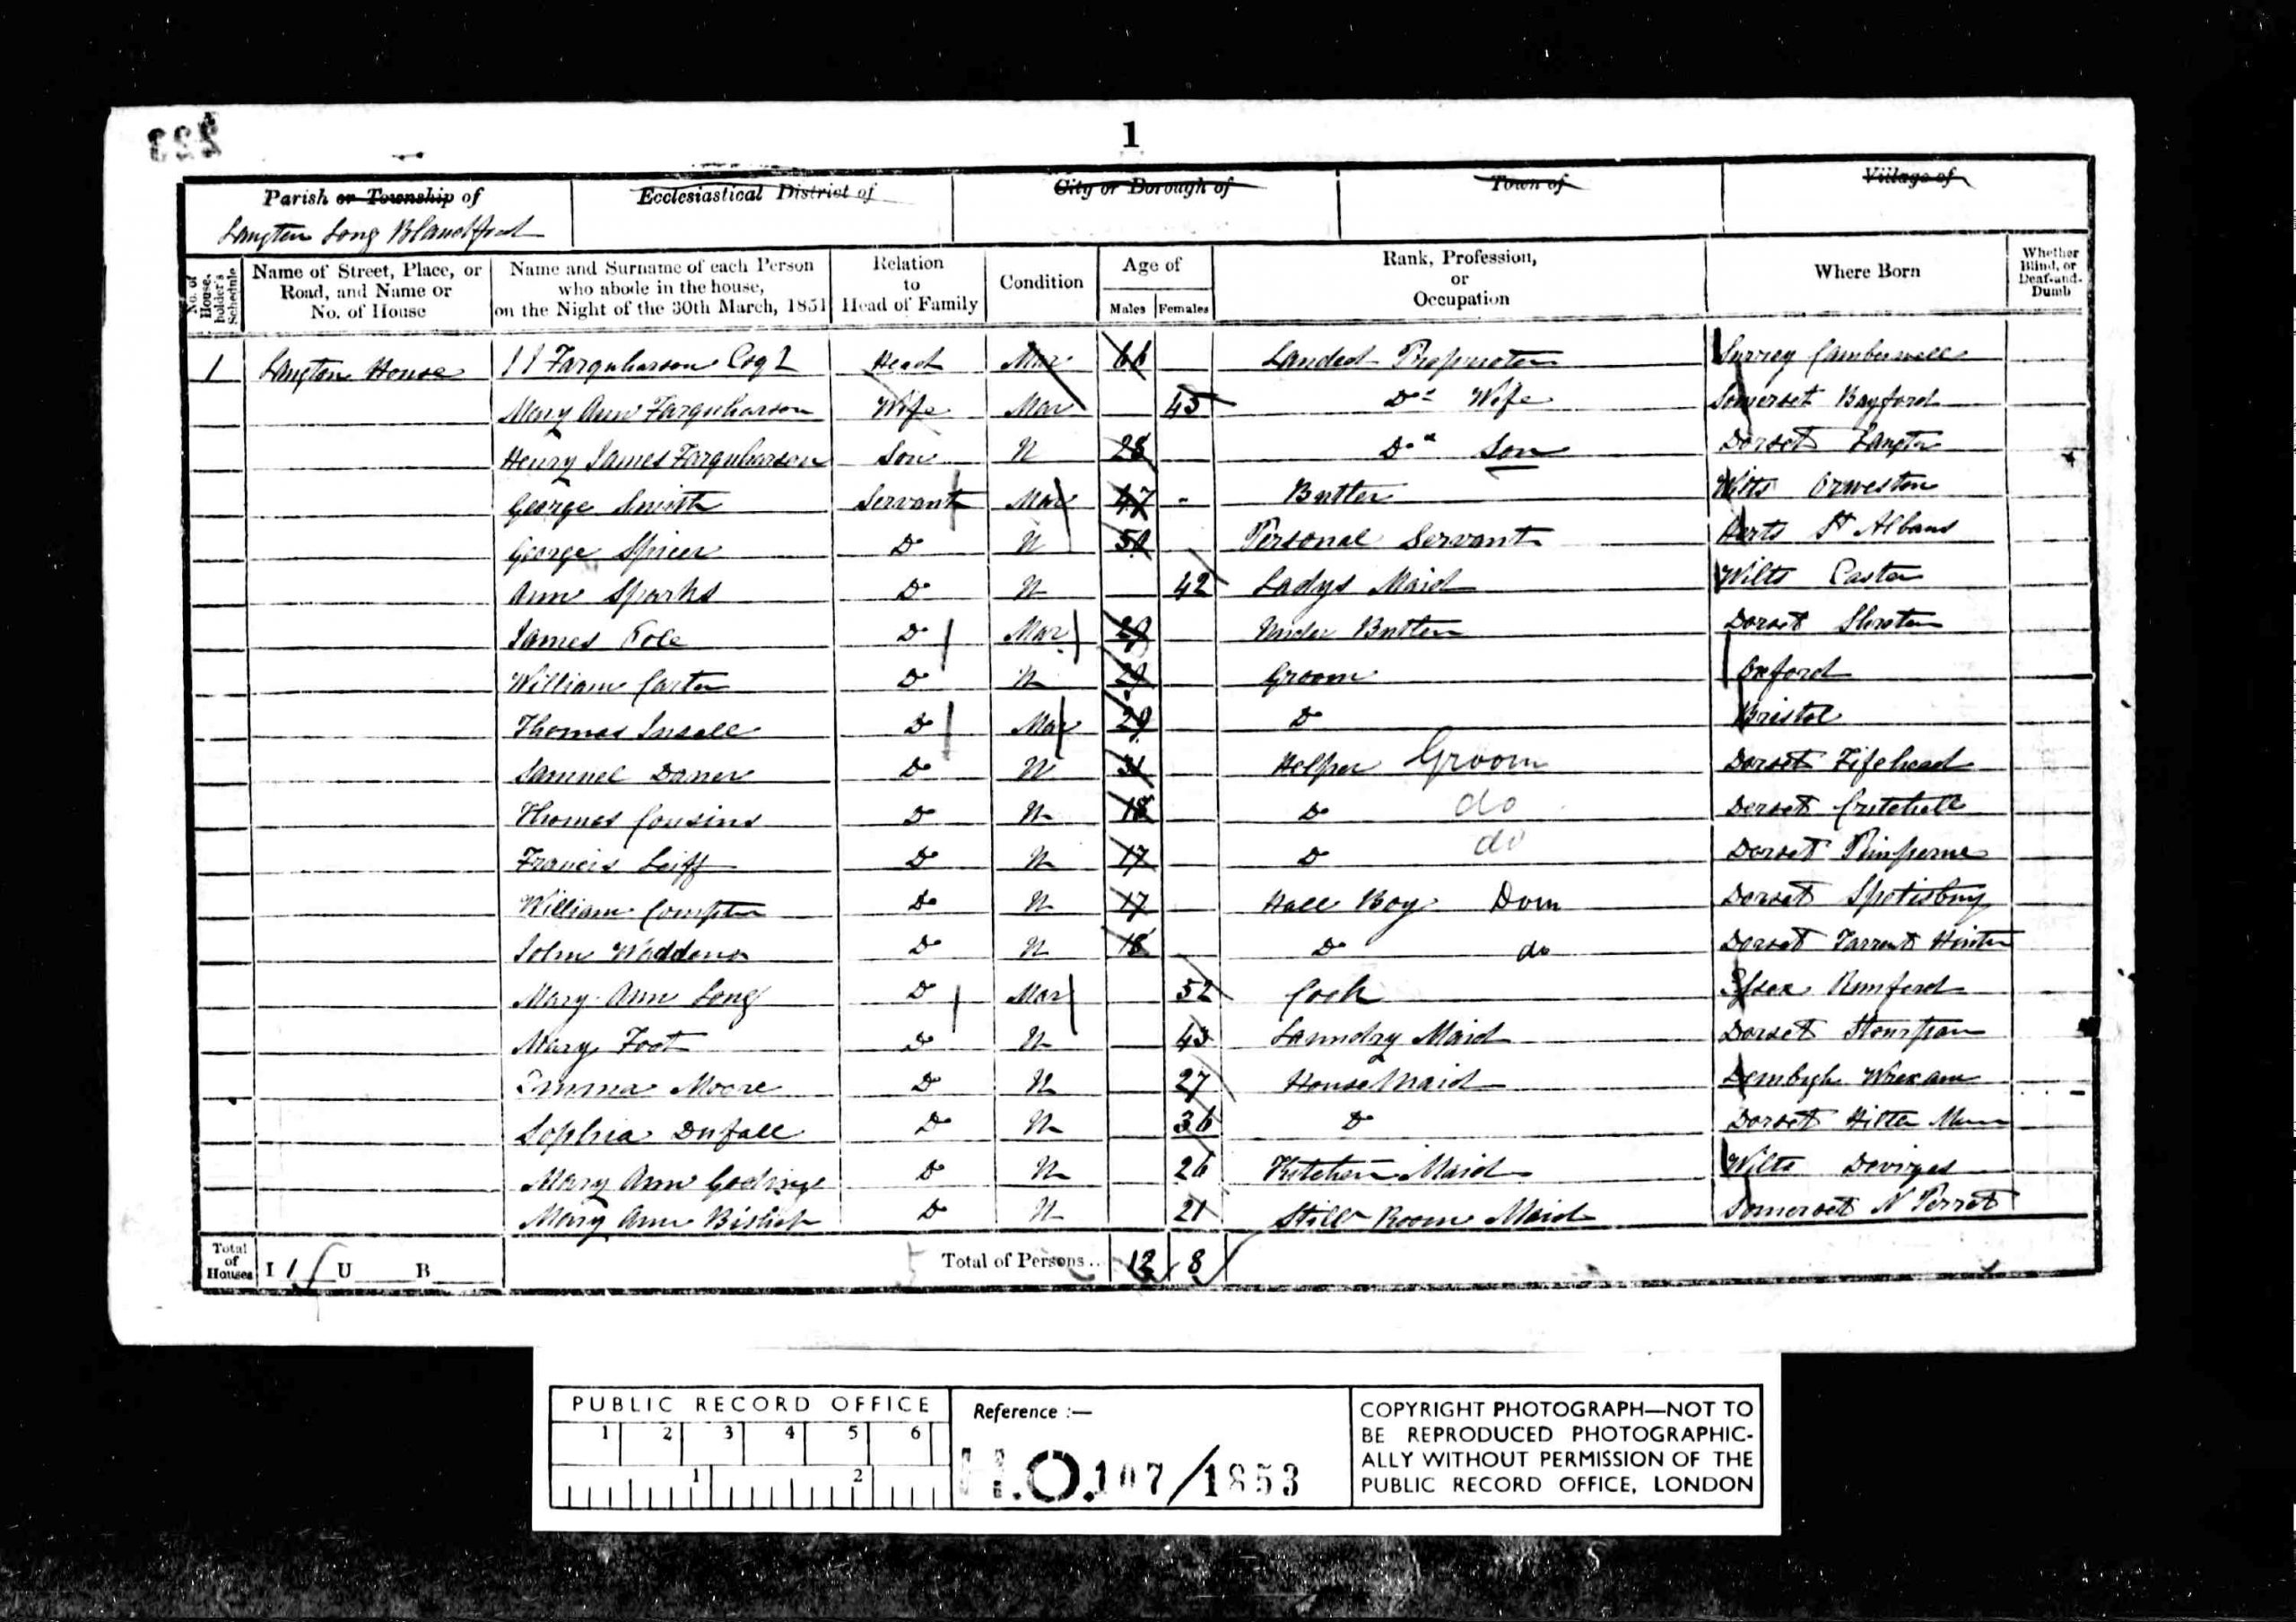 223
1
Parish or Township of Ecclesiastical District of City or Borough of Town of Village of
Langton Long Blandford
No. of House-holder's Schedule Name of Street, Place, or Road, and Name or No. of House Name and Surname of each Person who abode in the house, on the Night of the 30th March, 1851 Relation to Head of Family Condition Age of Males Females Rank, Profession, or Occupation Where Born Whether Blind, or Deaf-and-Dumb
1 Langton House J J Farquharson Esqr Head Mar 66 Landed Proprietor Surrey Camberwell
Mary Ann Farquharson Wife Mar 45 Do Wife Somerset Bayford
Henry James Farquharson Son U 28 Do Son Dorset Langton
George Smith Servant Mar 47 - Butler Wilts
George Spicer Do U Personal Servant Herts St Albans
Ann Sparks Do U 42 Ladys Maid Wilts
James Cole Do Mar 29 Under Butler Dorset Shroton
William Carter Do U 29 Groom Oxford
Thomas Insall Do Mar 29 Do Bristol
Samuel Do U Helper Groom Dorset Fifehead
Thomas Cousins Do U 18 Do do Dorset Critchell
Francis Do U 17 Do do Dorset Pimperne
William Compton Do U 17 Hall Boy Dom Dorset Spetisbury
John Do U 18 Do do Dorset Tarrent Hinton
Mary Ann Long Do Mar 52 Cook Essex Rumford
Mary Foot Do U 43 Laundry Maid Dorset Stourpain
Emma Moore Do U 27 House Maid Denbigh Wrexam
Sophia Dufall Do U 36 Do Dorset Hilton
Mary Ann Do U 26 Kitchen Maid Wilts Devizes
Mary Ann Bishop Do U 21 Still Room Maid Somerset N Perret
Total of Houses I 1 U B Total of Persons.. 12 8
PUBLIC RECORD OFFICE
1 2 3 4 5 6
1 2
Reference :—
H.O.107/1853
COPYRIGHT PHOTOGRAPH—NOT TO
BE REPRODUCED PHOTOGRAPHIC-
ALLY WITHOUT PERMISSION OF THE
PUBLIC RECORD OFFICE, LONDON